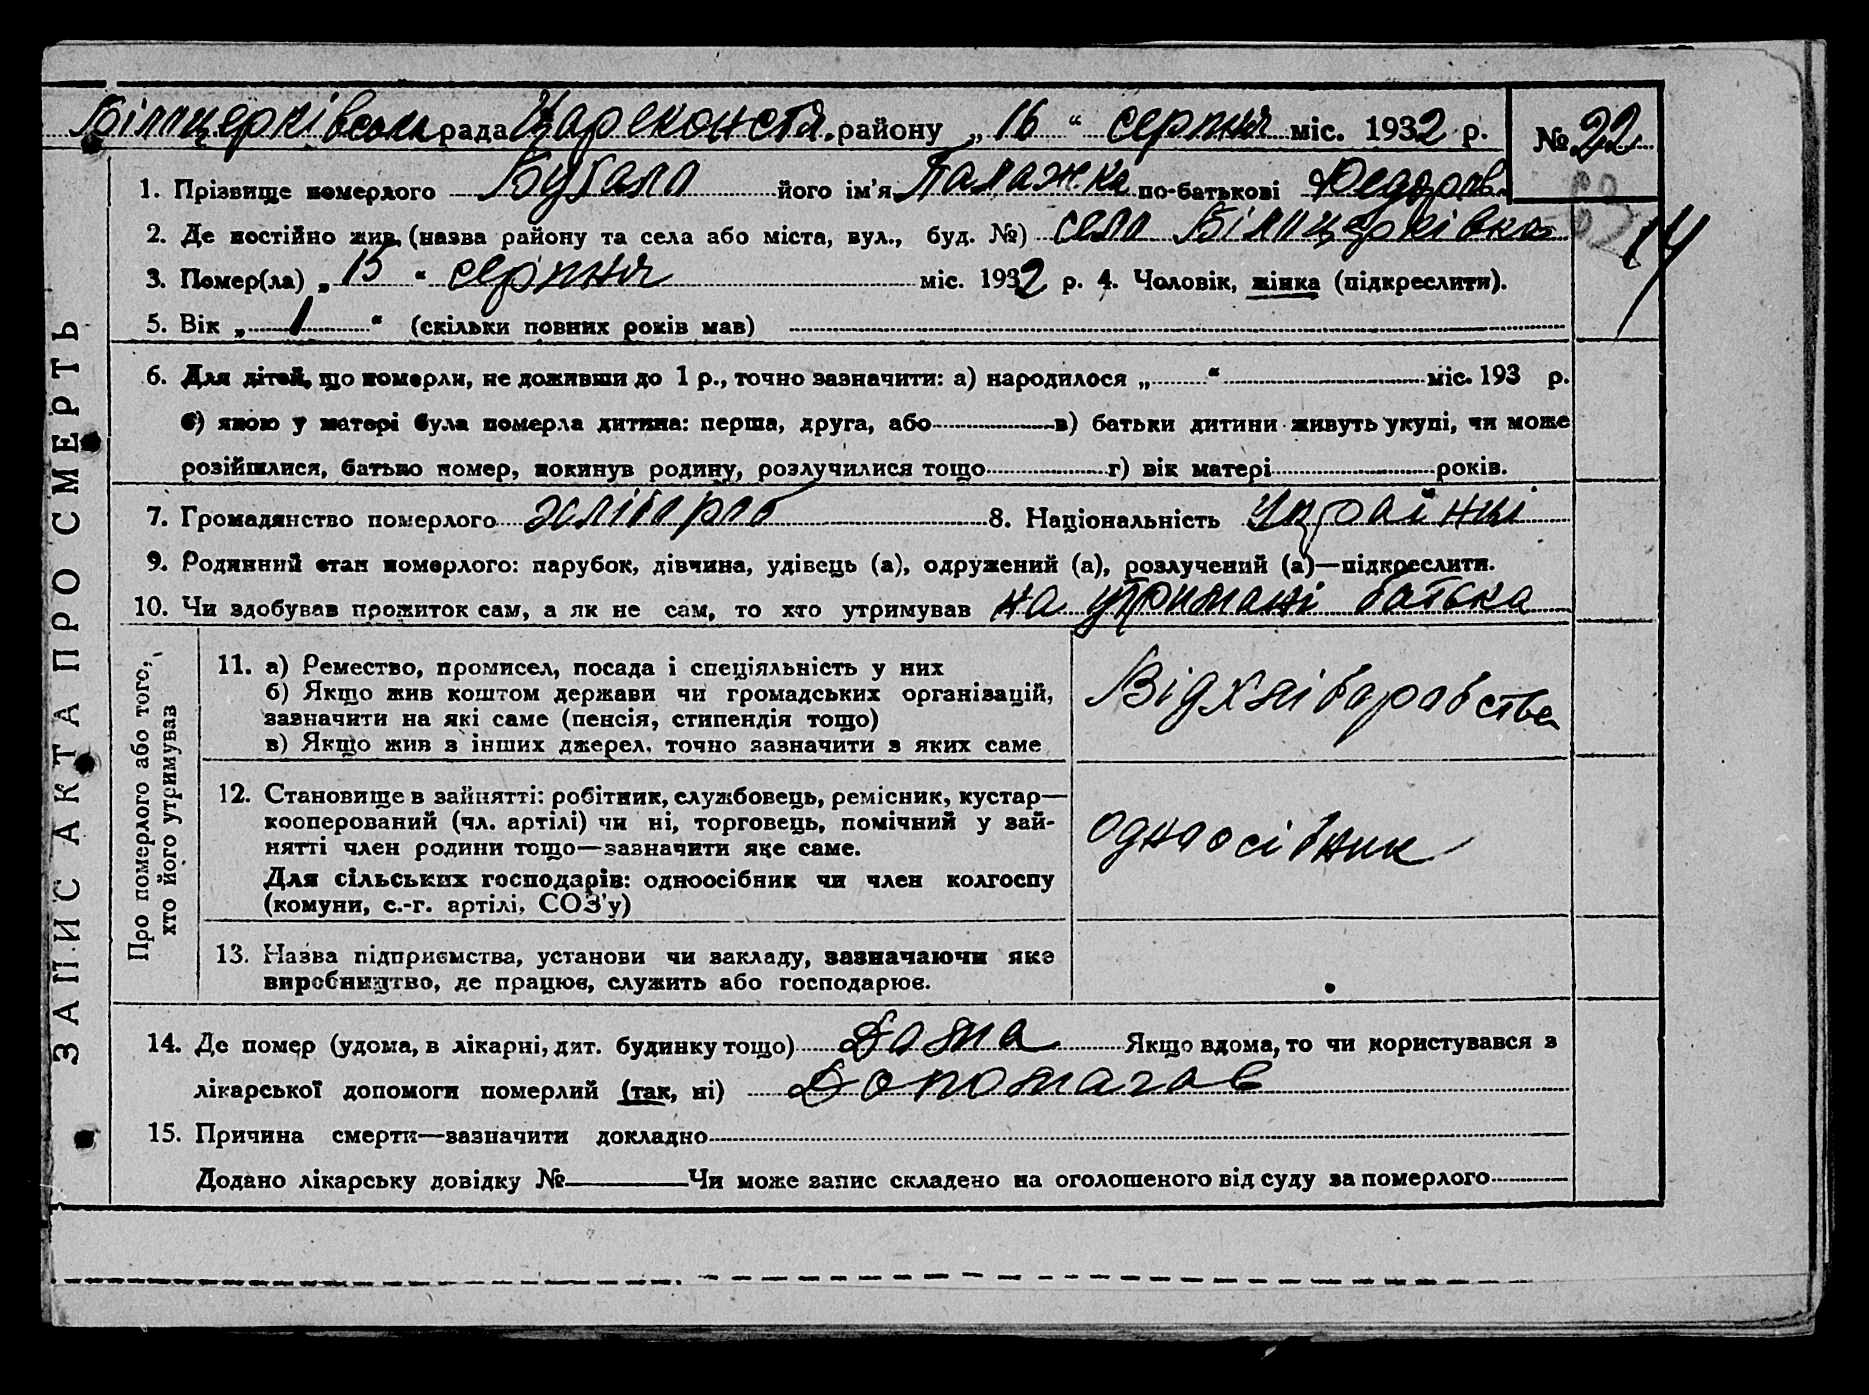 Білоцерківська рада Царекостя. району „ 16 “ серпня міс. 1932 р. № 22
1. Прізвище померлого його ім’я Палажка по-батькові Федоров.
2. Де постійно жив, (назва району та села або міста, вул., буд. №) село Білоцерківка
63
62
14
3. Помер(ла) „ 15 “ серпня міс. 1932 р. 4. Чоловік, жінка (підкреслити).
5. Вік „ 1 “ (скільки повних років мав)
6. Для дітей, що померли, не доживши до 1 р., точно зазначити: а) народилося „ “ міс. 193 р.
б) якою у матері була померла дитина: перша, друга, або в) батьки дитини живуть укупі, чи може
розійшлися, батько помер, покинув родину, розлучилися тощо г) вік матері років.
7. Громадянство померлого хлібороб 8. Національність Українці
9. Родинний стан померлого: парубок, дівчина, удівець (а), одружений (а), розлучений (а)—підкреслити.
10. Чи здобував прожиток сам, а як не сам, то хто утримував на утримані батька
ЗАПИС АКТА ПРО СМЕРТЬ
Про померлого або того,
хто його утримував
11. а) Ремество, промисел, посада і спеціяльність у них
б) Якщо жив коштом держави чи громадських організацій,
зазначити на які саме (пенсія, стипендія тощо)
в) Якщо жив з інших джерел, точно зазначити з яких саме
Від хліборобства
12. Становище в зайнятті: робітник, службовець, ремісник, кустар—
кооперований (чл. артілі) чи ні, торговець, помічний у зай-
нятті член родини тощо—зазначити яке саме.
Для сільських господарів: одноосібник чи член колгоспу
(комуни, с.-г. артілі, СОЗ’у)
одноосібник
13. Назва підприємства, установи чи закладу, зазначаючи яке
виробництво, де працює, служить або господарює.
14. Де помер (удома, в лікарні, дит. будинку тощо) Дома Якщо вдома, то чи користувався з
лікарської допомоги померлий (так, ні) Допомагав
15. Причина смерти—зазначити докладно
Додано лікарську довідку № Чи може запис складено на оголошеного від суду за померлого